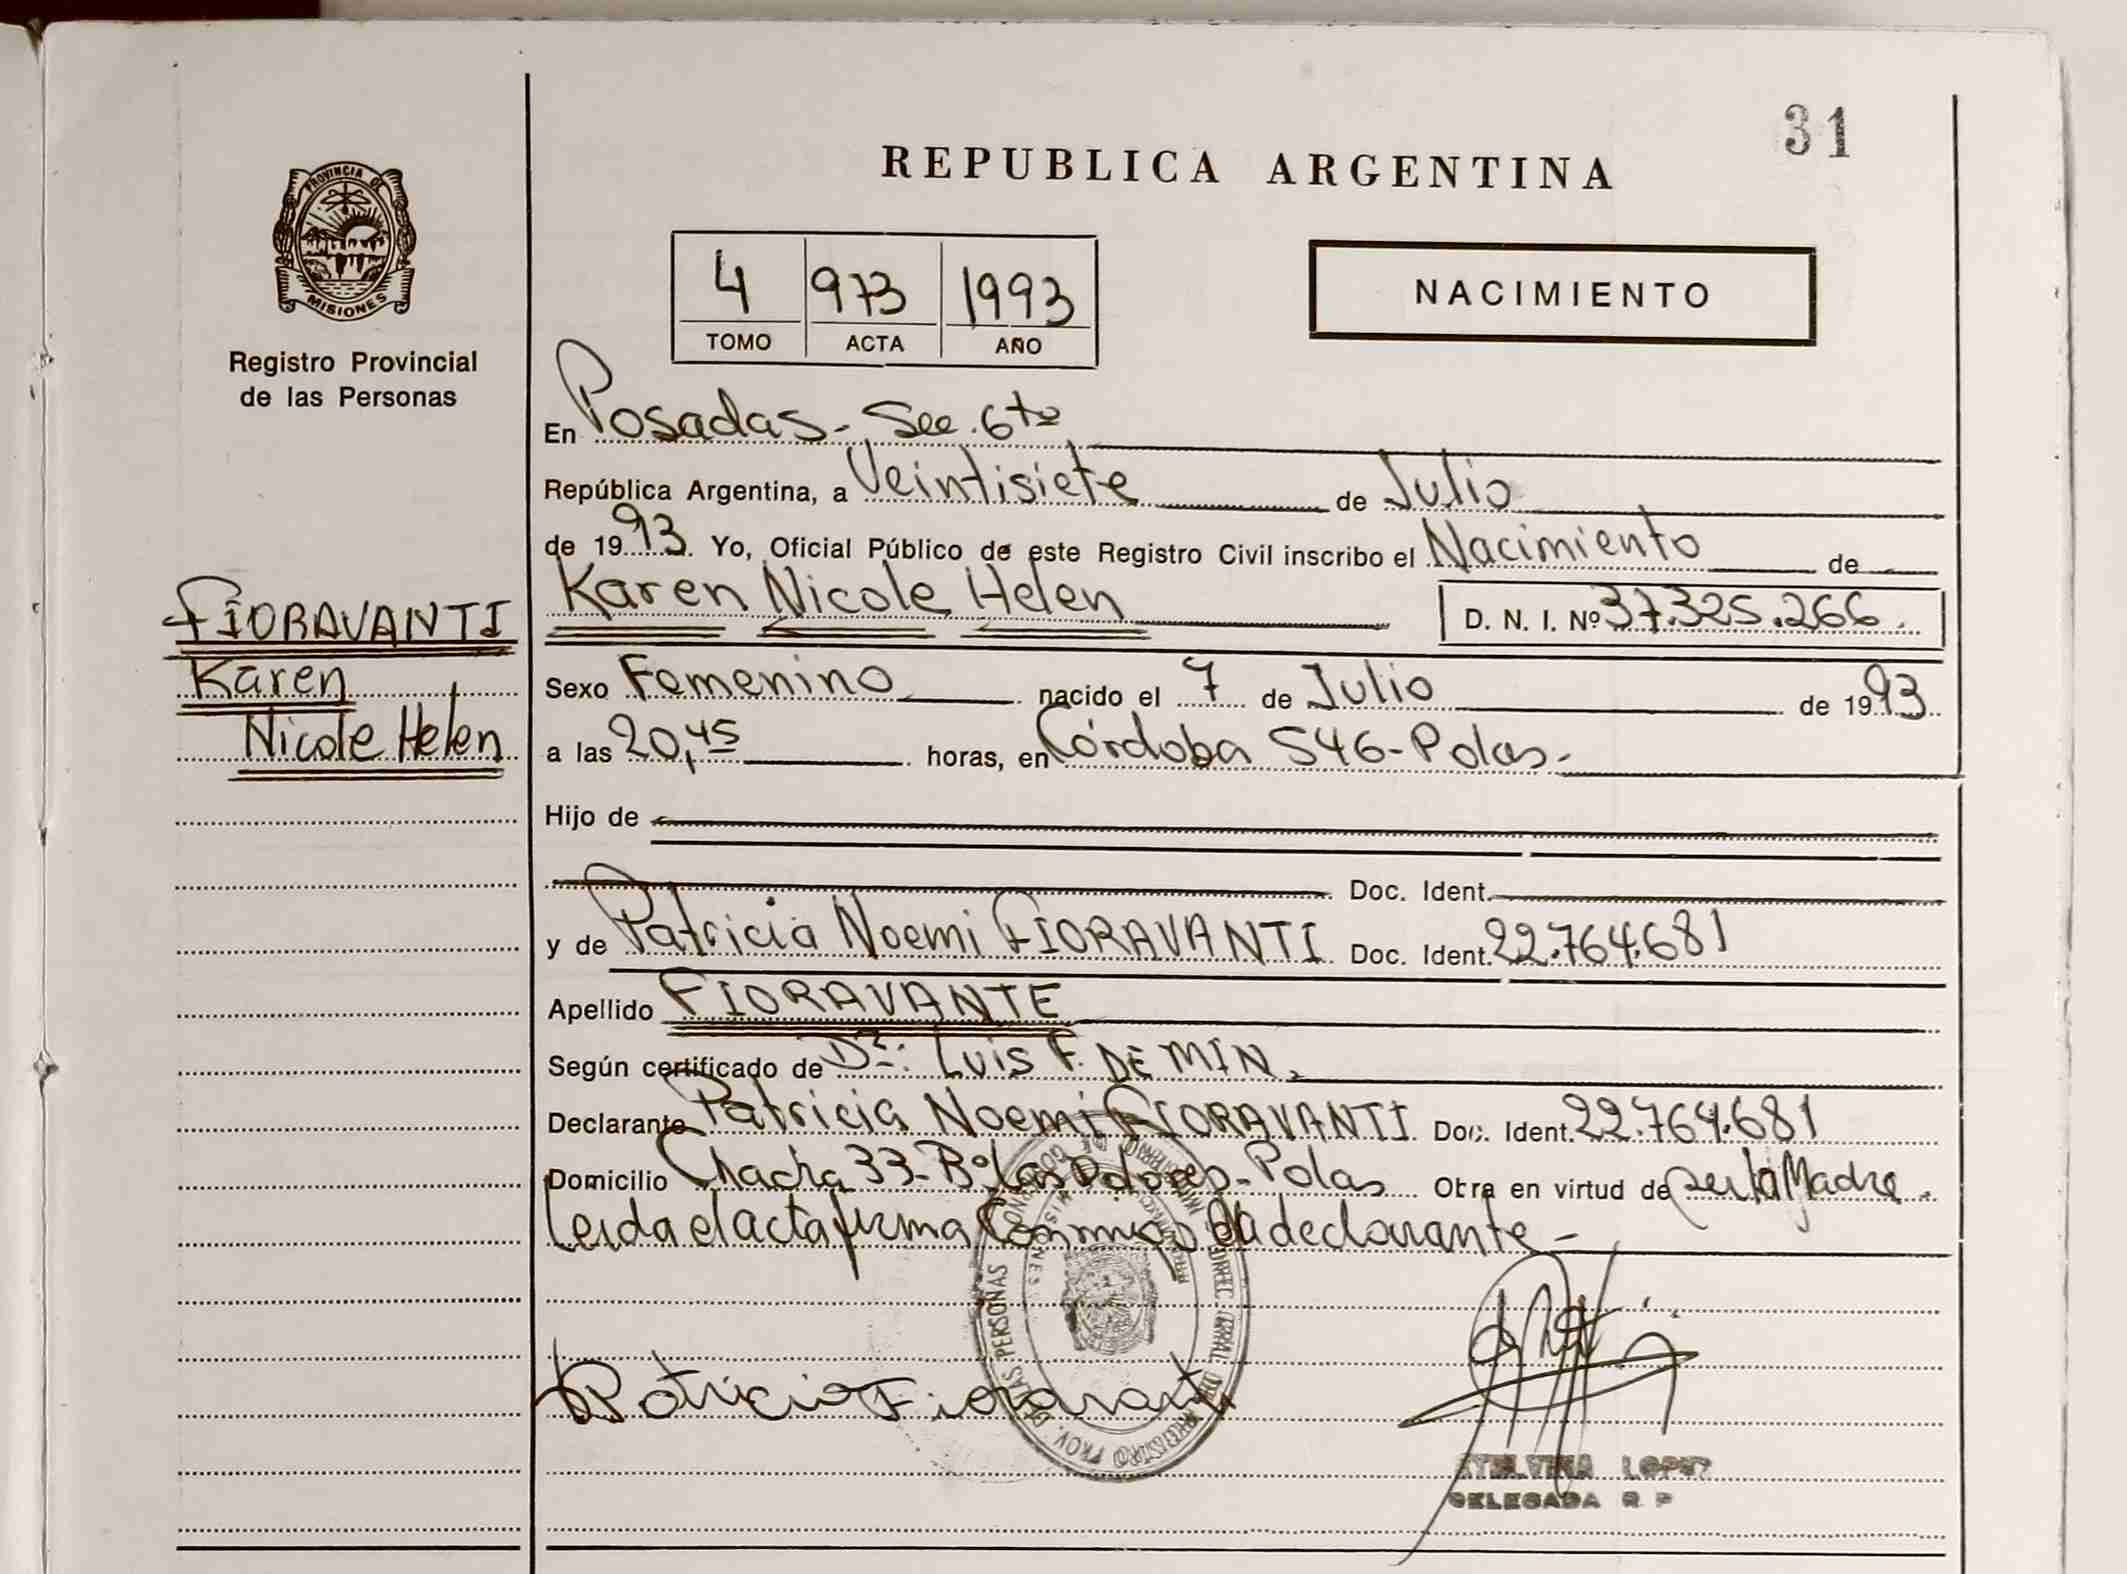 31
REPUBLICA ARGENTINA
PROVINCIA DE
MISIONES
Registro Provincial
de las Personas
4 973 1993
TOMO ACTA AÑO
NACIMIENTO
En Posadas - Sec. 6ta
República Argentina, a Veintisiete de Julio
de 1993. Yo, Oficial Público de este Registro Civil inscribo el Nacimiento de
Karen Nicole Helen D. N. I. Nº 37.325.266.
FIORAVANTI
Karen
Nicole Helen
Sexo Femenino nacido el 7 de Julio de 1993.
a las 20,45 horas, en Córdoba 546 - Pdas.-
Hijo de
Doc. Ident.
y de Patricia Noemi FIORAVANTI Doc. Ident. 22.764.681
Apellido FIORAVANTE
Según certificado de Dr.: Luis F. DE MIN.
Declarante Patricia Noemi FIORAVANTI Doc. Ident. 22.764.681
Domicilio Chacra 33 - Bº Las Dolores - Pdas Obra en virtud de ser la Madre.
Leida el acta firma Conmigo la declarante -
Patricia Fioravanti
LOPEZ
DELEGADA R. P